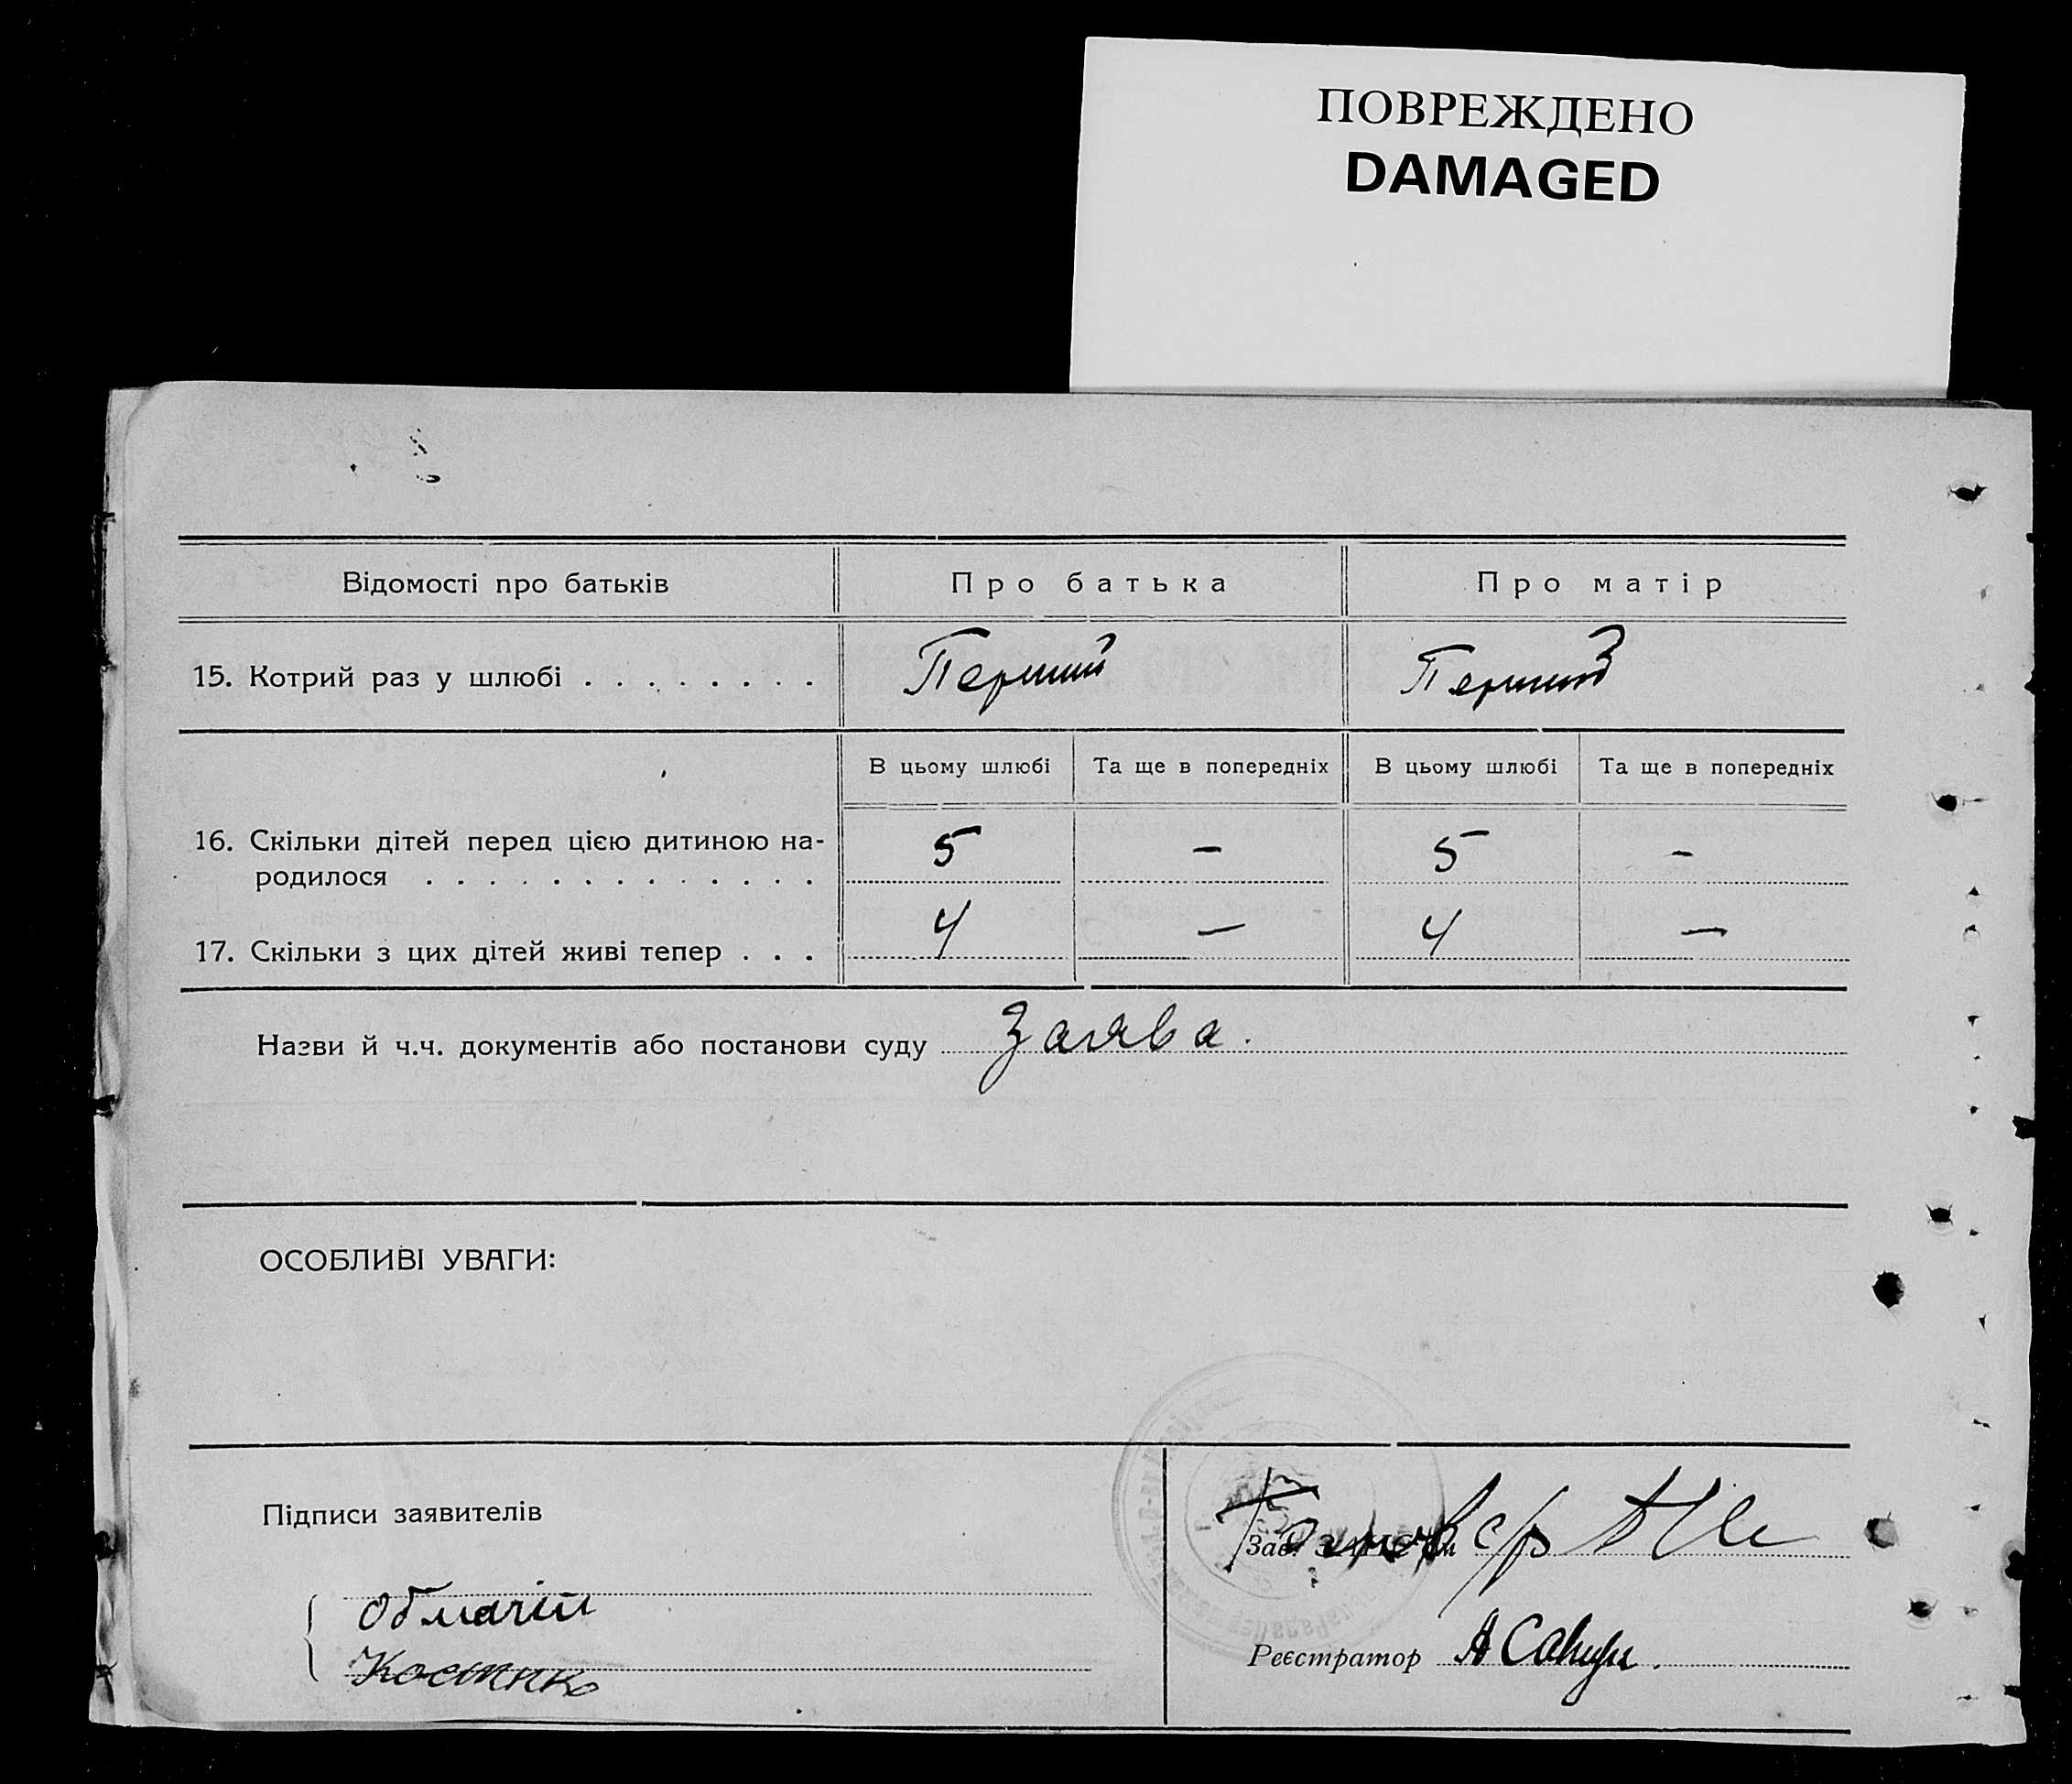 ПОВРЕЖДЕНО
DAMAGED
Відомості про батьків
Про батька
Про матір
15. Котрий раз у шлюбі . . . . . . . .
Перший
Перший
В цьому шлюбі
Та ще в попередніх
В цьому шлюбі
Та ще в попередніх
16. Скільки дітей перед цією дитиною на-
родилося . . . . . . . . . . . . .
5
—
5
—
17. Скільки з цих дітей живі тепер . . .
4
—
4
—
Назви й ч.ч. документів або постанови суду Заява.
ОСОБЛИВІ УВАГИ:
Підписи заявителів
Обмачій
Костнко
Зав.
Реєстратор